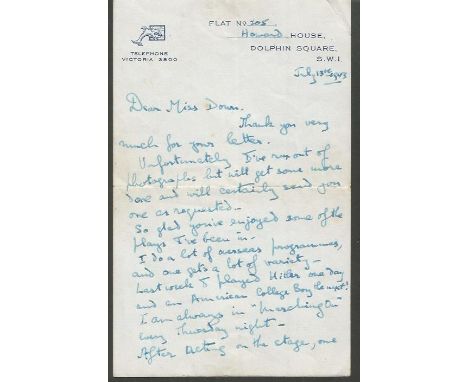 FLAT No. 205
Howard HOUSE,
DOLPHIN SQUARE,
S.W.1.
TELEPHONE
VICTORIA 3800
July 13th 1943
Dear Miss Down.
Thank you very
much for your letter.
Unfortunately I've run out of
photographs but will get some more
done and will certainly send you
one as requested—
So glad you've enjoyed some of the
plays I've been in—
I do a lot of overseas programmes,
and one gets a lot of variety—
Last week I played Hitler one day
and an American College Boy the next!
I am always in "Marching On"
every Thursday night—
After acting on the stage, one